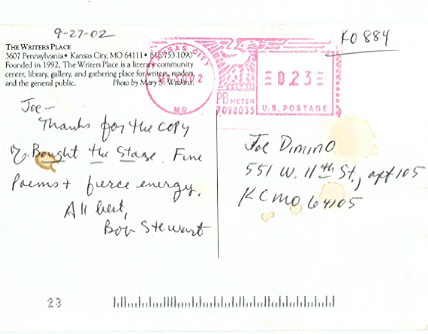 9-27-02
KO 884
THE WRITERS PLACE
3607 Pennsylvania • Kansas City, MO 64111 • 816/753-1090
Founded in 1992, The Writers Place is a literary community
center, library, gallery, and gathering place for writers, readers,
and the general public. Photo by Mary S. Watkins.
KANSAS CITY
MO
0.23
PB METER
7098035
U.S. POSTAGE
Joe—
Thanks for the copy
of Bought the Stage. Fine
poems + fierce energy.
All best,
Bob Stewart
Joe Dimino
551 W. 11th St., apt 105
KCMO 64105
23